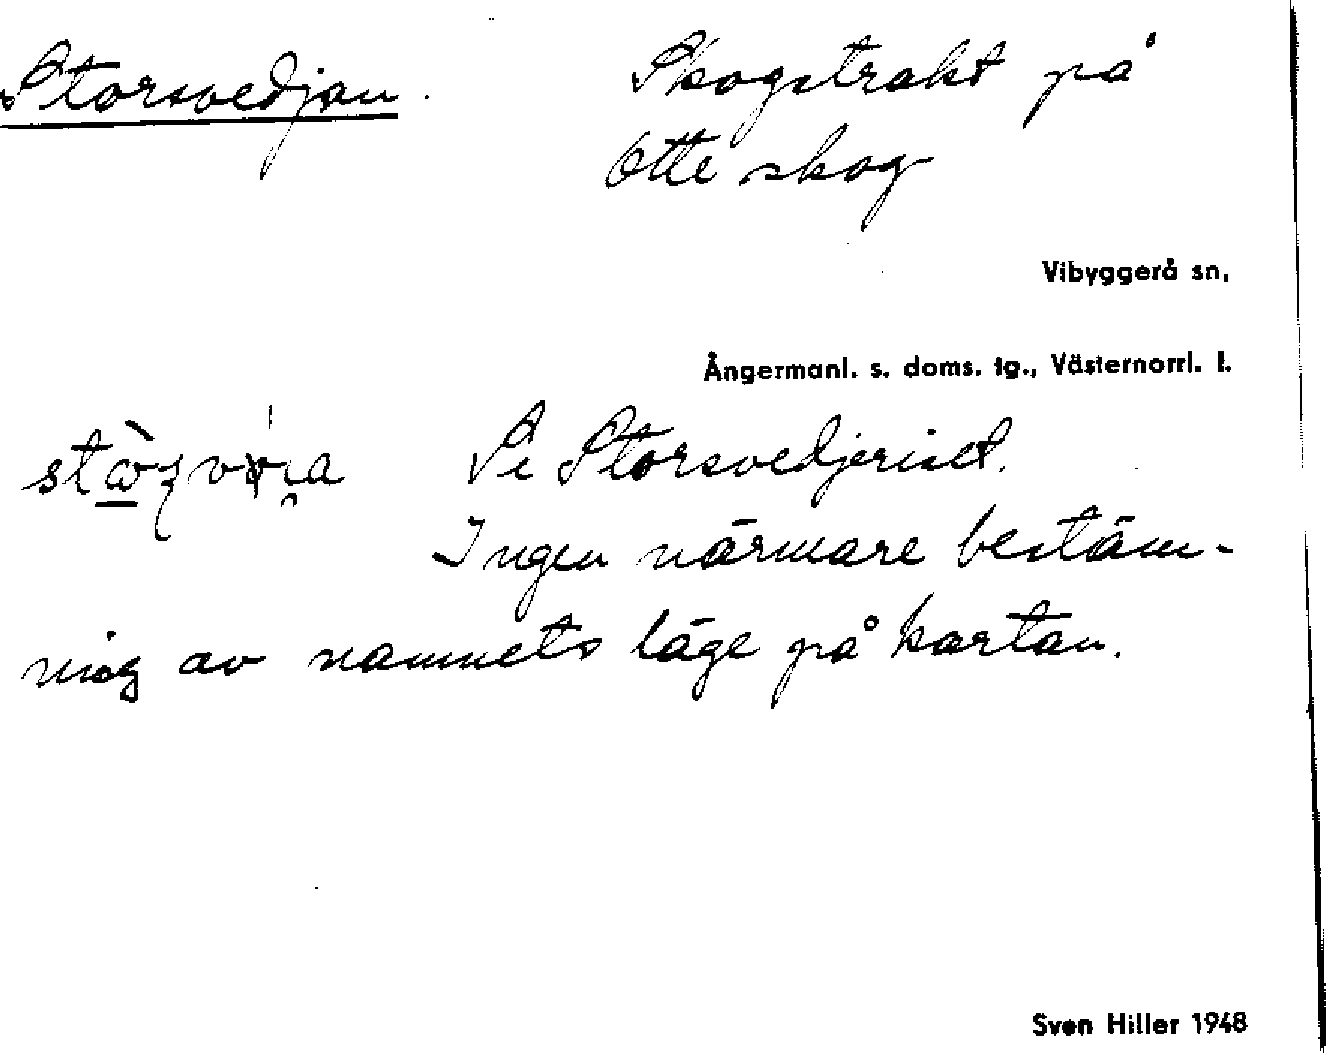 Storsvedjan. Skogstrakt på
Otte skog
Vibyggerå sn,
Ångermanl. s. doms. tg., Västernorrl. l.
Se Storsvedjeriset.
Ingen närmare bestäm-
ning av namnets läge på kartan.
Sven Hiller 1948